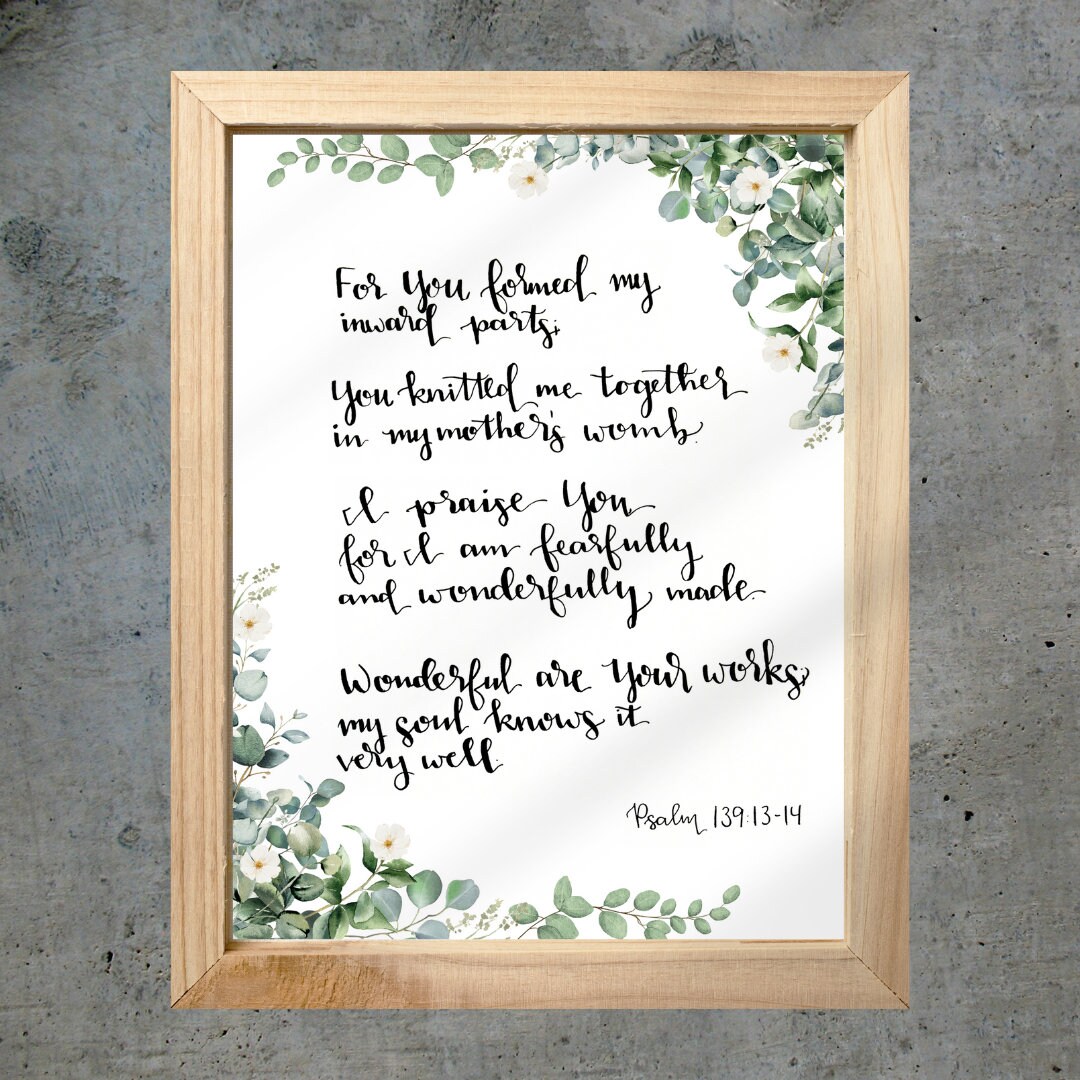 For You formed my
inward parts;
You knitted me together
in my mother's womb.
I praise You
for I am fearfully
and wonderfully made.
Wonderful are Your works;
my soul knows it
very well.
Psalm 139:13-14